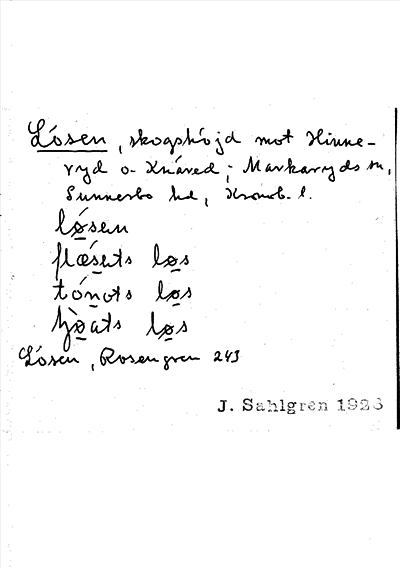 Lósen, skogshöjd mot Hinne-
ryd o. Knäred; Markaryds sn,
Sunnerbo hd, Kronob. l.
løsen
flæsets løs
tónots løs
løs
Lósen, Rosengren 243
J. Sahlgren 1926